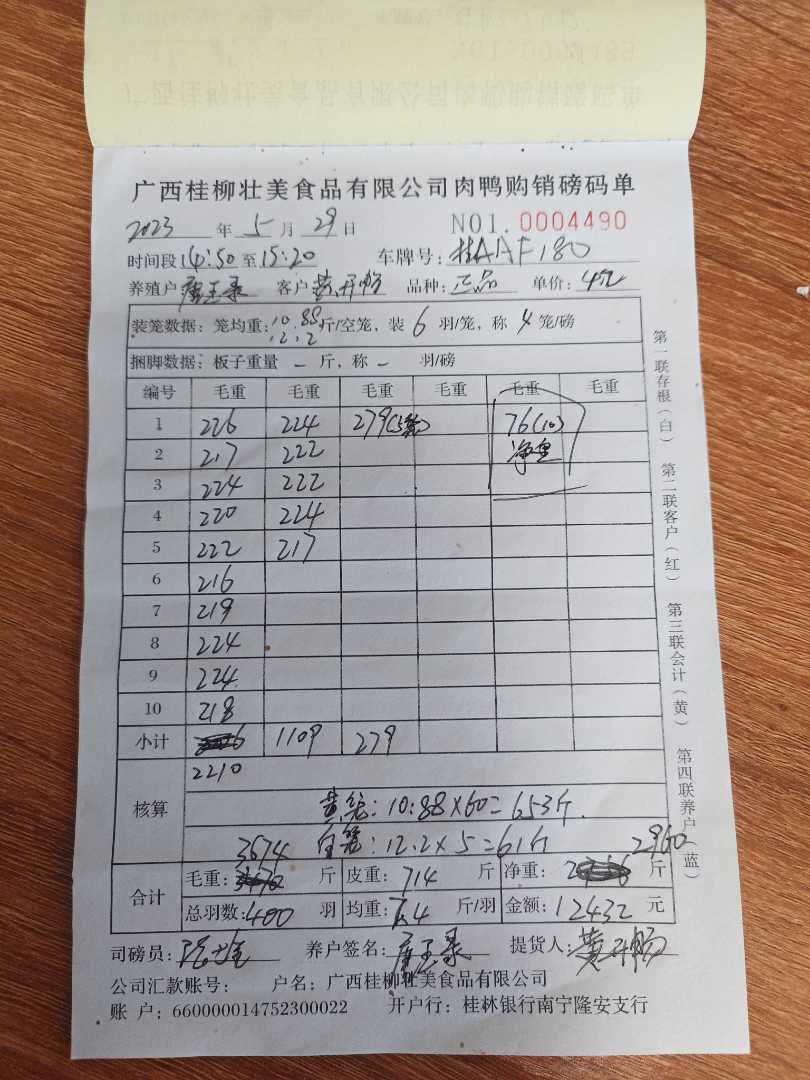 广西桂柳壮美食品有限公司肉鸭购销磅码单
2023 年 5 月 29 日 NO1. 0004490
时间段 14:50 至 15:20 车牌号: 桂AAF180
养殖户 客户 黄开畅 品种: 正品 单价: 4元
装笼数据: 笼均重: 10.88 斤/空笼, 装 6 羽/笼, 称 4 笼/磅
12.2
捆脚数据: 板子重量 - 斤, 称 - 羽/磅
编号 毛重 毛重 毛重 毛重 毛重 毛重
1 226 224 279(5笼) 76(10)
2 217 222 净重
3 224 222
4 220 224
5 222 217
6 216
7 219
8 224
9 224
10 218
小计 1109 279
2210
核算
黄笼: 10.88×60=653斤.
白笼: 12.2×5=61斤
3674 2960
合计 毛重: 斤 皮重: 714 斤 净重: 斤
总羽数: 400 羽 均重: 7.4 斤/羽 金额: 12432 元
司磅员: 养户签名: 提货人: 黄开畅
公司汇款账号: 户名: 广西桂柳壮美食品有限公司
账 户: 660000014752300022 开户行: 桂林银行南宁隆安支行
第一联存根(白) 第二联客户(红) 第三联会计(黄) 第四联养户(蓝)